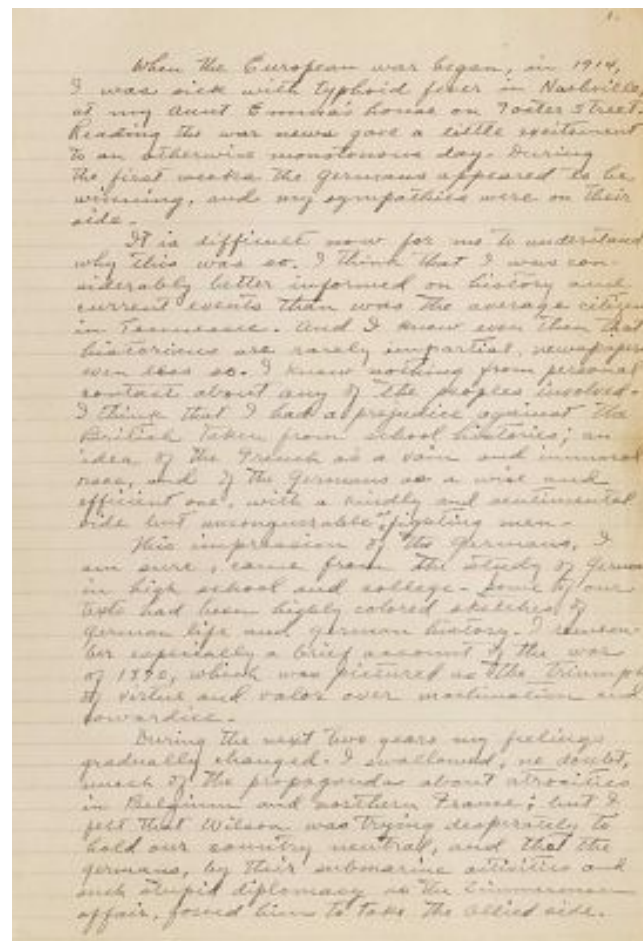 1.
When the European war began, in 1914,
I was sick with typhoid fever in Nashville,
at my Aunt Emma's house on Foster Street.
Reading the war news gave a little excitement
to an otherwise monotonous day. During
the first weeks the Germans appeared to be
winning, and my sympathies were on their
side.
It is difficult now for me to understand
why this was so. I think that I was con-
siderably better informed on history and
current events than was the average citizen
in Tennessee. And I knew even then that
historians are rarely impartial, newspapers
even less so. I knew nothing from personal
contact about any of the peoples involved.
I think that I had a prejudice against the
British taken from school histories; an
idea of the French as a vain and immoral
race, and of the Germans as a wise and
efficient one, with a kindly and sentimental
side but unconquerable fighting men.
This impression of the Germans, I
am sure, came from the study of German
in high school and college. Some of our
texts had been highly colored sketches of
German life and German history. I remem-
ber especially a brief account of the war
of 1870, which was pictured as the triumph
of virtue and valor over machination and
cowardice.
During the next two years my feelings
gradually changed. I swallowed, no doubt,
much of the propaganda about atrocities
in Belgium and northern France; but I
felt that Wilson was trying desperately to
hold our country neutral, and that the
Germans, by their submarine activities and
such stupid diplomacy as the Zimmerman
affair, forced him to take the Allied side.